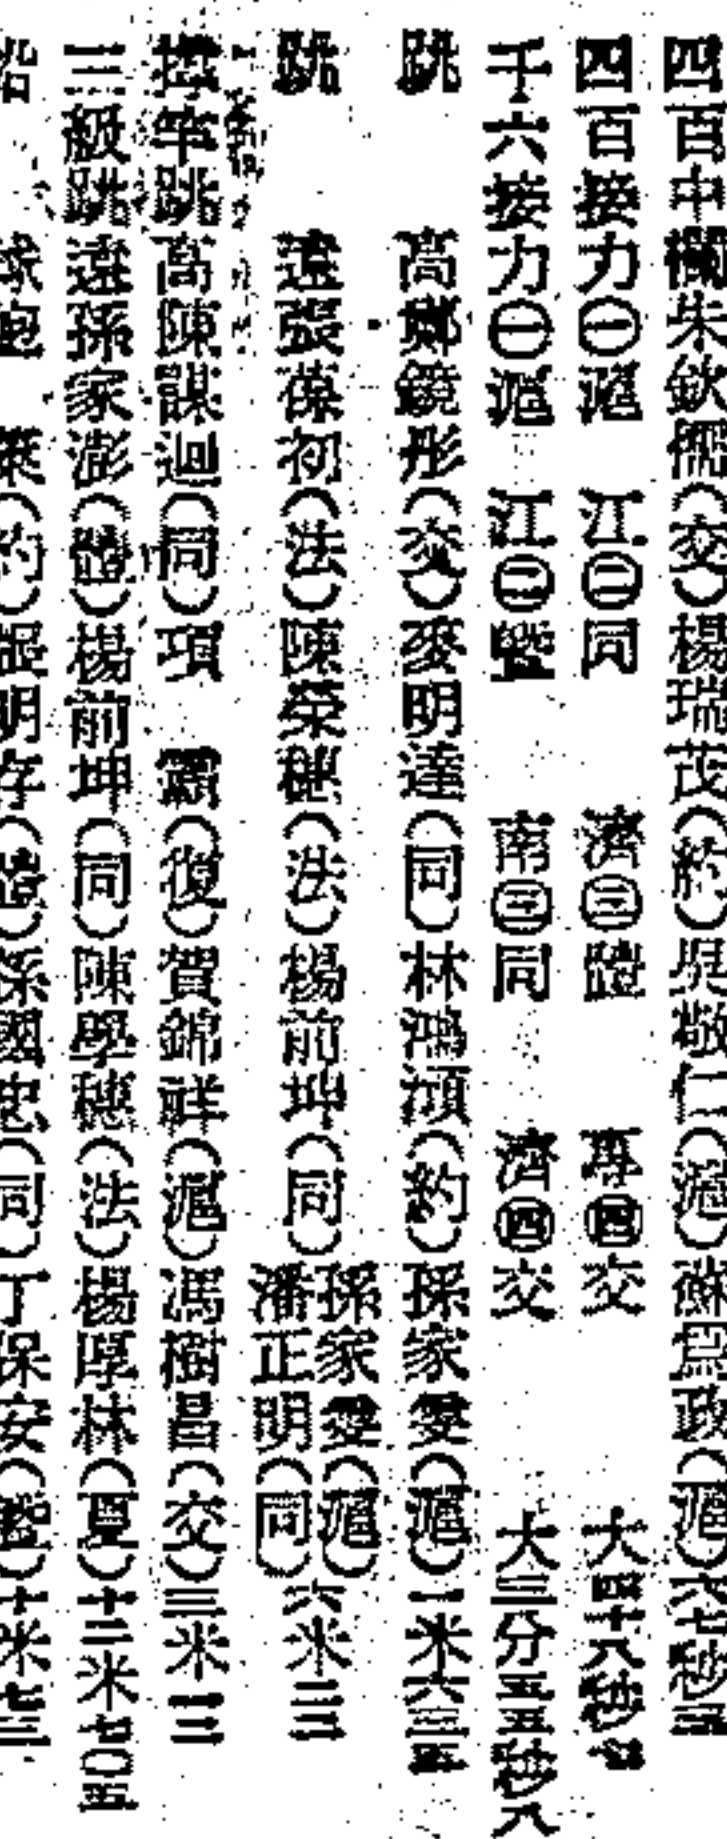 四百中欄朱欽儒（交）楊瑞茂（約）吳敬仁（滬）蘇爲政（滬）六七秒
四百接力㊀滬　江㊁同　濟㊂體　專㊃交　大四十八秒
千六接力㊀滬　江㊁暨　南㊂同　濟㊃交　大三分五五秒八
跳　高鄭鏡彤（交）麥明達（同）林鴻滇（約）孫家雯（滬）一米六三五
跳　遠張葆初（法）陳榮（法）楊前坤（同）孫家雯（滬）潘正明（同）六米二二
撐竿跳高陳謀迴（同）項　霸（復）賀錦祥（滬）馮樹昌（交）三米一二
三級跳遠孫家澎（體）楊前坤（同）陳學穗（法）楊厚林（夏）十二米七〇五
鉛　球鮑　（約）明存（體）孫國忠（同）丁保安（暨）十米七三